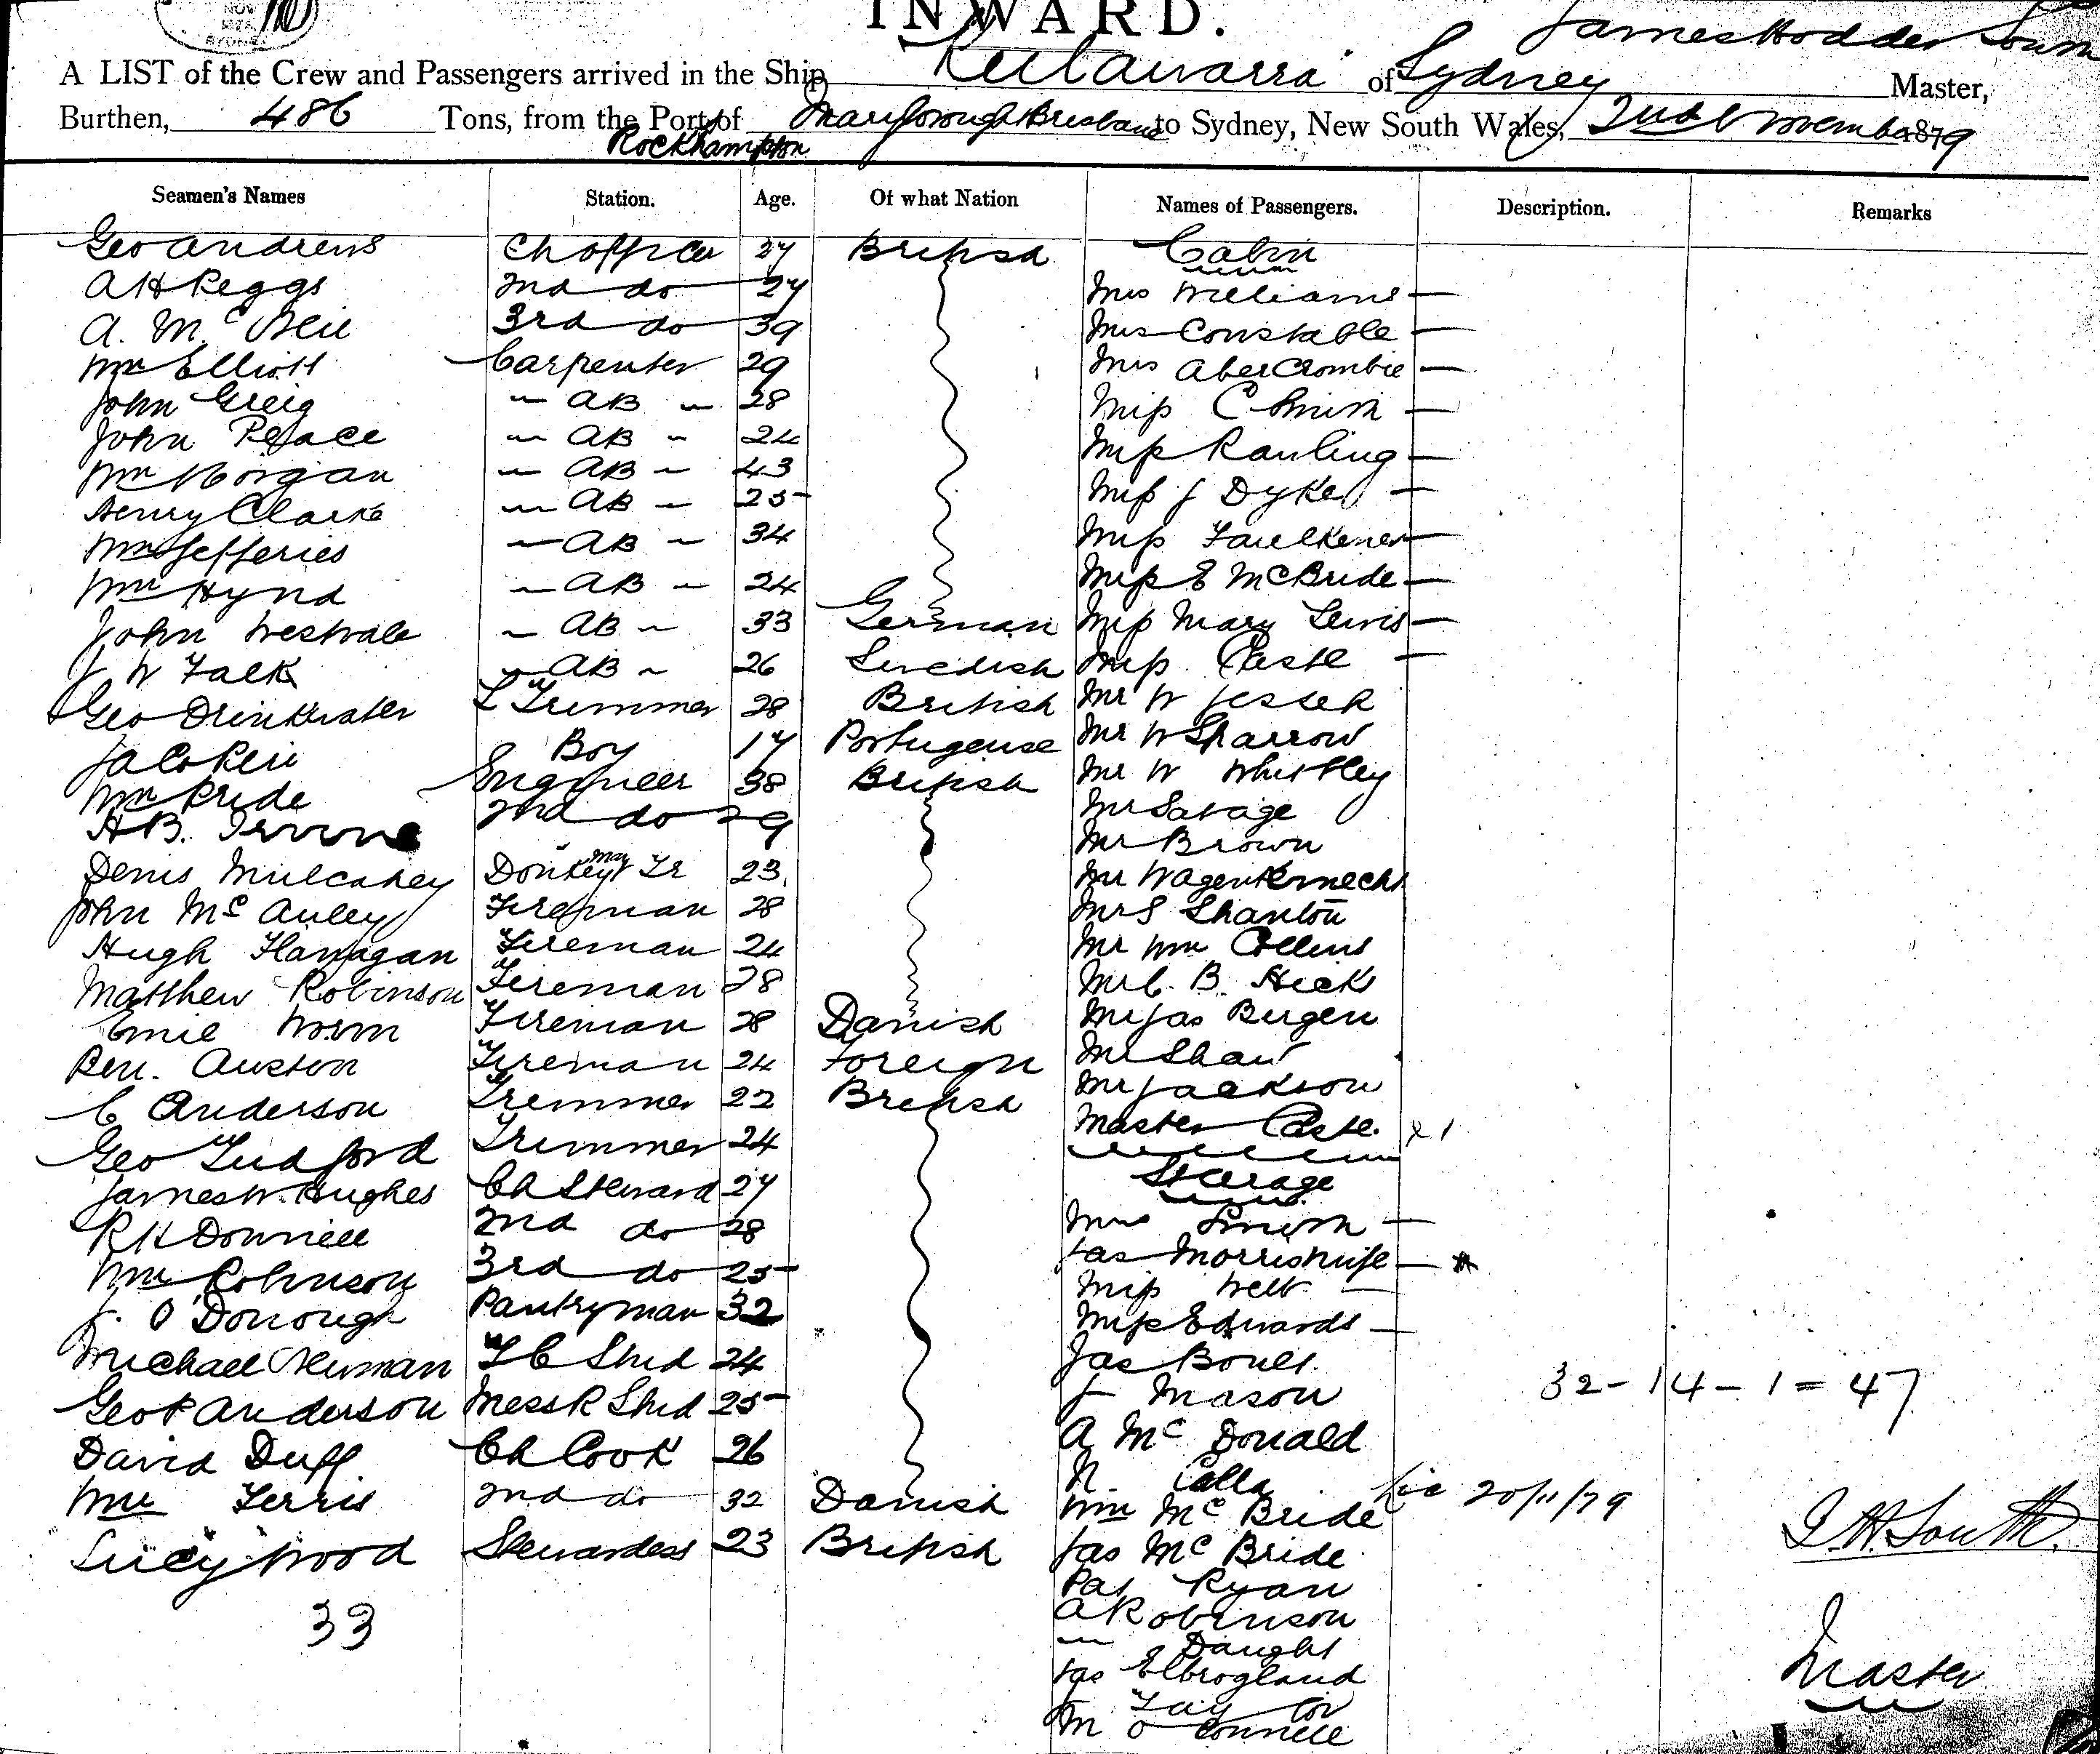 NOV
SYDNEY
INWARD.
James Hodder South
A LIST of the Crew and Passengers arrived in the Ship Keilawarra of Sydney Master,
Burthen, 486 Tons, from the Port of Maryborough Brisbane to Sydney, New South Wales, 2nd November 1879
Rockhampton
Seamen's Names Station. Age. Of what Nation Names of Passengers. Description. Remarks
Geo Andrews Ch Officer 27 British Cabin
A H Peggs 2nd do 27 Mrs Williams —
A. Mc Neil 3rd do 39 Mrs Constable —
Wm Elliott Carpenter 29 Mrs AberCrombie —
John Greig " AB " 28 Miss C Smith —
John Peace " AB " 24 Miss Rawling —
Wm Morgan " AB " 43 Miss J Dyke —
Henry Clarke " AB " 25 Miss Faulkener —
Wm Jefferies " AB " 34 Miss E McBride —
Wm Hynd " AB " 24 Miss Mary Lewis —
John Westvale " AB " 33 German Miss Caste —
J W Falk " AB " 26 Swedish Mr W Jesser
Geo Drinkwater L Trimmer 28 British Mr W Sparrow
Jaco Peri Boy 17 Portugeuse Mr W Whittley
Wm Pride Engineer 38 British Mr Savage
H B. Irvine 2nd do 29 Mr Brown
Denis Mulcahey Donkeyman Fr 23 Mr Wagenknecht
John Mc Auley Fireman 28 Mr S Shanton
Hugh Flanagan Fireman 24 Mr Wm Collins
Matthew Robinson Fireman 28 Mr C. B. Hick
Emil Worm Fireman 28 Danish Mr Jas Bergen
Ben. Auston Fireman 24 Foreign Mr Shaw
C Anderson Trimmer 22 British Mr Jackson
Geo Tudford Trimmer 24 Master Caste. x1
James W. Hughes Ch Steward 27 Steerage
R H Donnell 2nd do 28 Mrs Smith —
Wm Robinson 3rd do 25 Jas Morris Wife —
J. O Donough Pantryman 32 Miss Webb —
Michael Newman F C Stwd 24 Miss Edwards —
Geo P Anderson Mess R Stwd 25 Jas Boult
David Duff Ch Cook 26 J Mason
Wm Ferris 2nd do 32 Danish A Mc Donald
Lucy Wood Stewardess 23 British N. Calla
Wm Mc Bride
Jas Mc Bride
Pat Ryan
A Robinson
" Daught
Jas Elbrogland
J Taylor
M O Connell
33
32 - 14 - 1 = 47
20/11/79
J. H. South.
Master